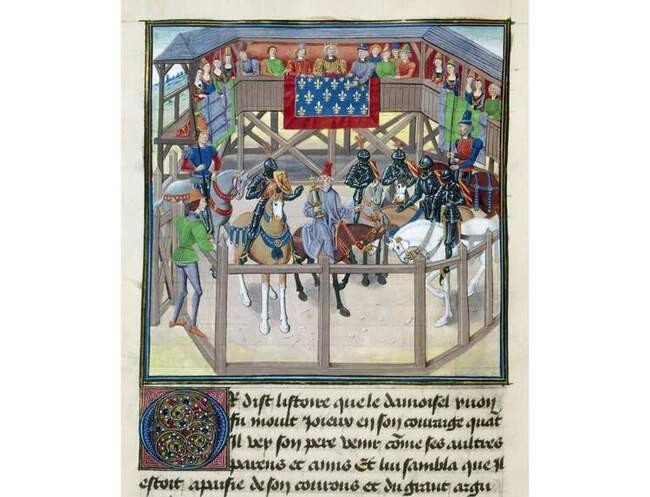 Or dist listoire que le damoisel yuon
fu moult joieux en son couraige quāt
Il vey son pere venir cōme ses aultres
parens et amis Et lui sambla que Il
estoit apaisie de son courous et du grant argu